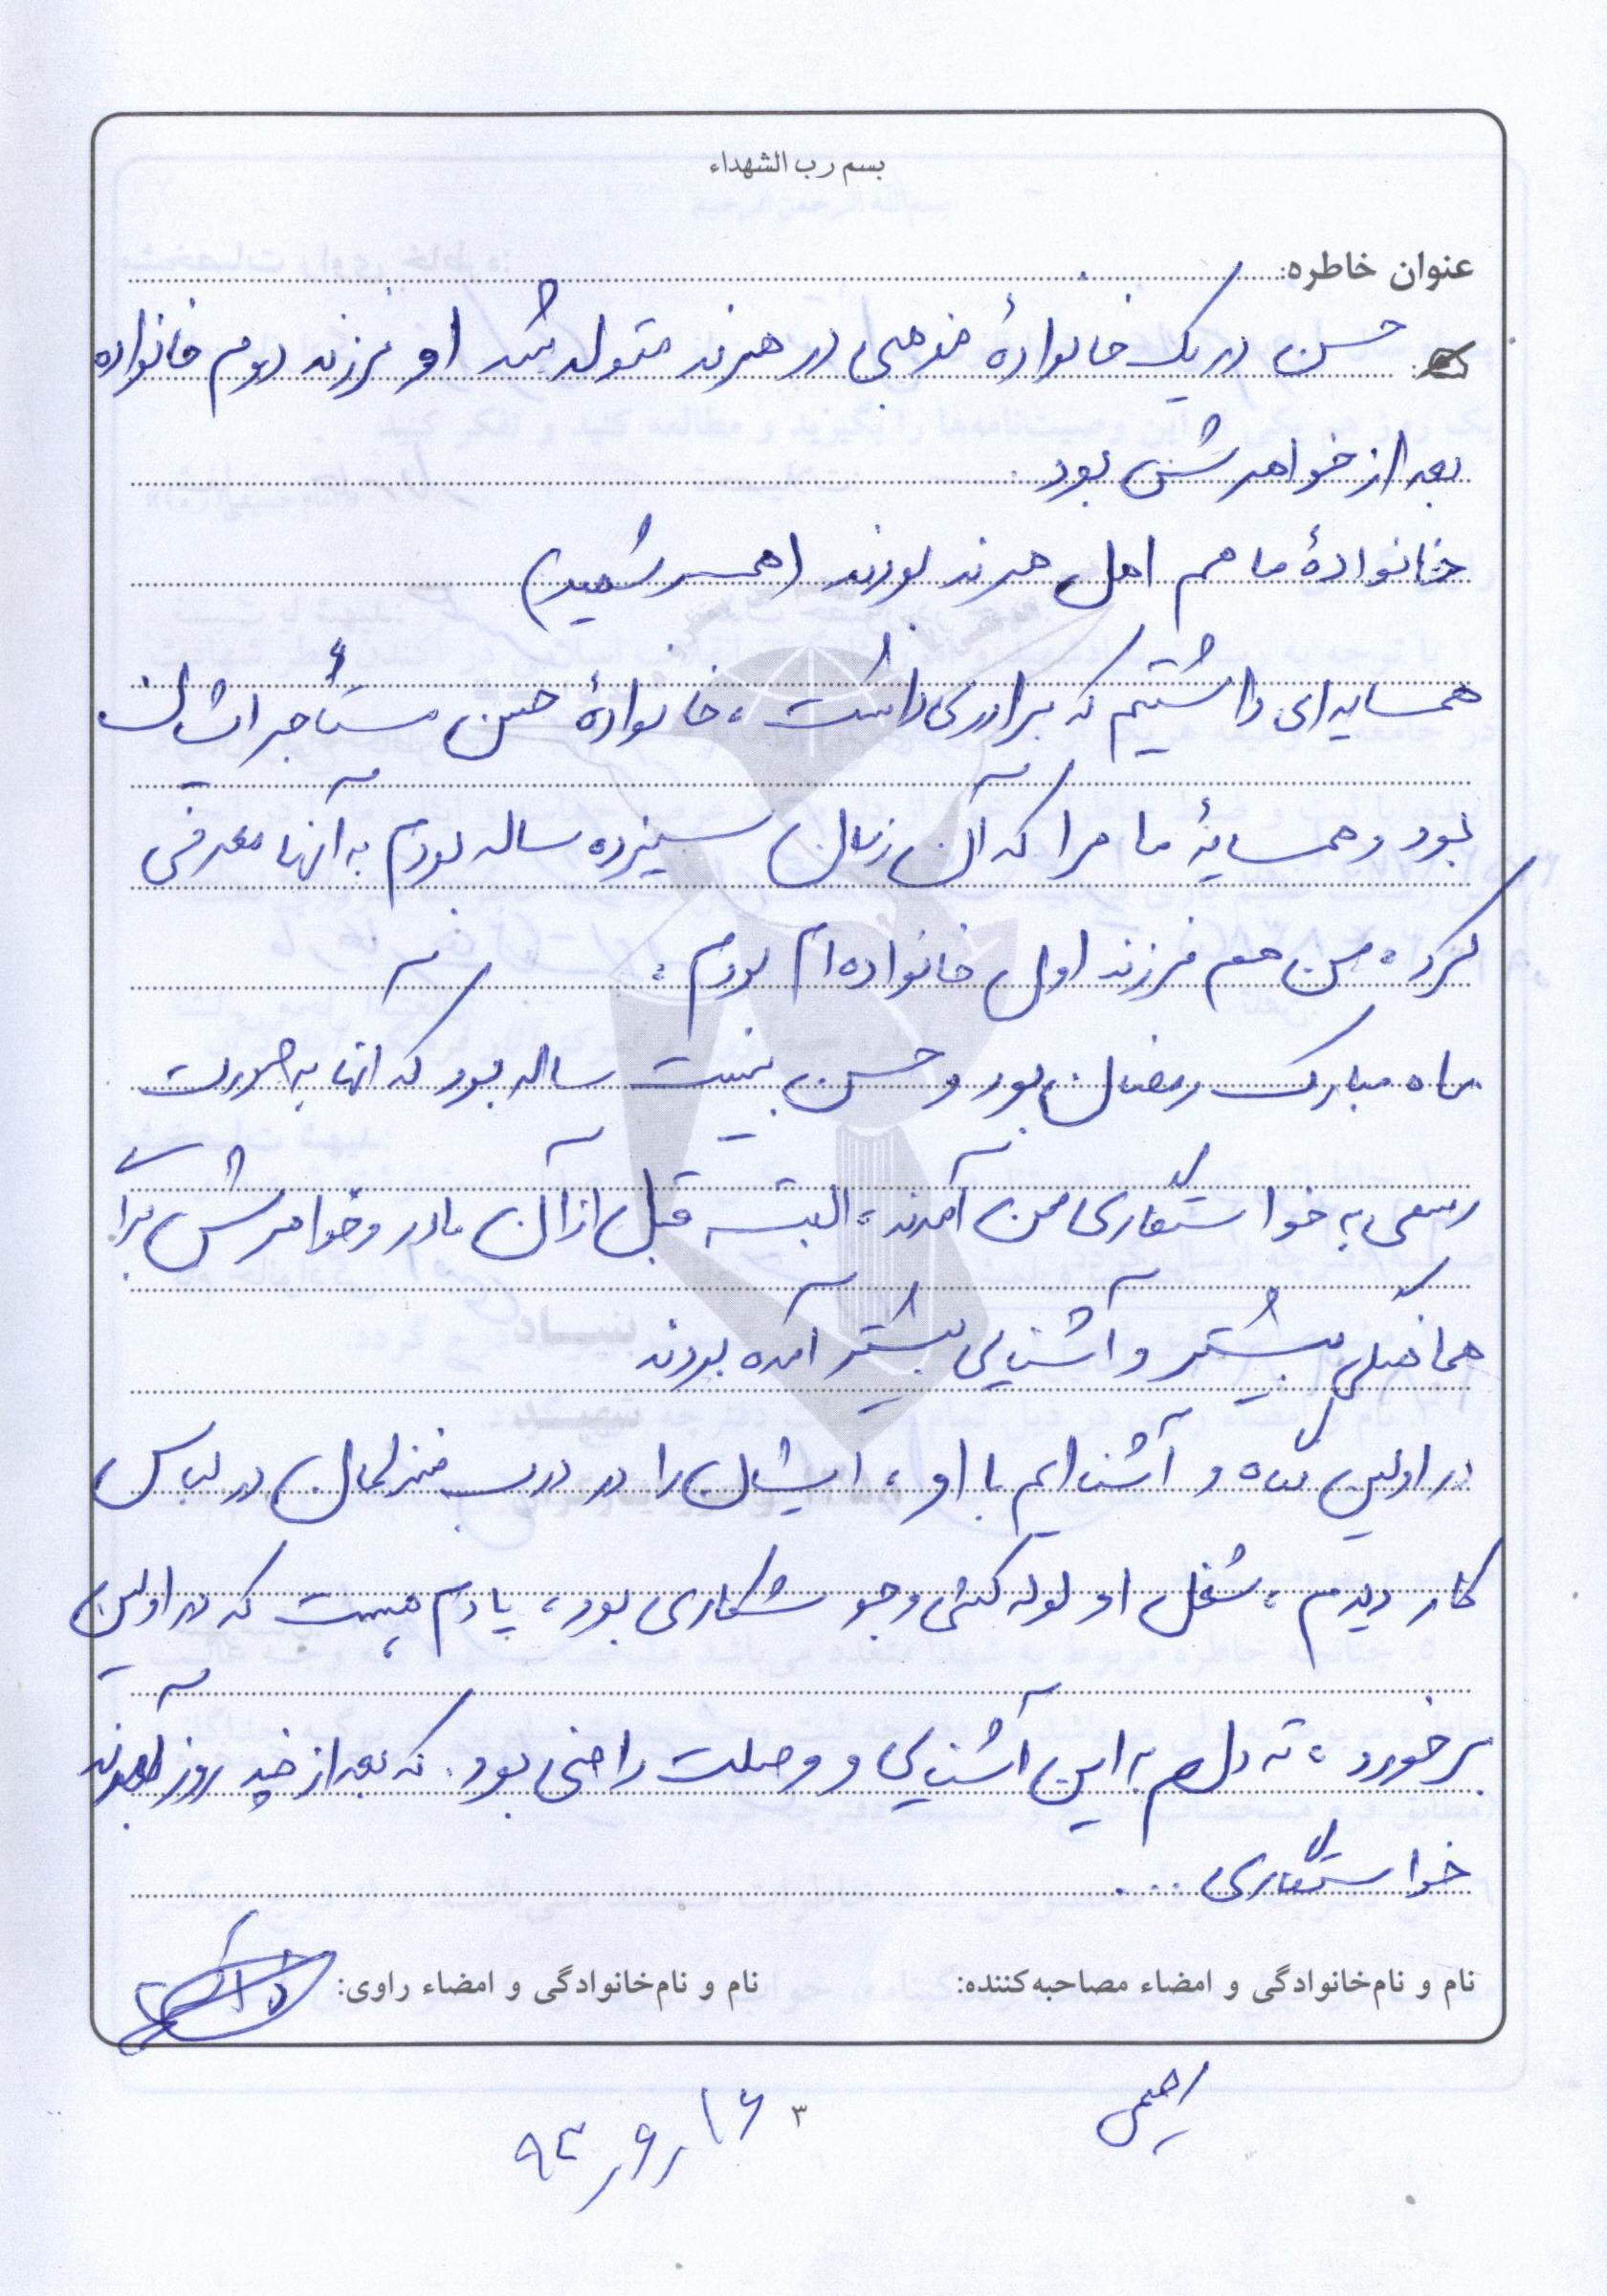 بسم رب الشهداء
عنوان خاطره:
حسن در یک خانوادهٔ مذهبی در هرند متولد شد او فرزند دوم خانواده
بعد از خواهرش بود.
خانوادهٔ ما هم اهل هرند بودند (همسر شهید)
همسایه‌ای داشتیم که برادری داشت، خانوادهٔ حسن مستأجر ایشان
بود و همسایهٔ ما مرا که آن زمان سیزده ساله بودم به آنها معرفی
کرد. من هم فرزند اول خانواده‌ام بودم.
ماه مبارک رمضان بود و حسن بیست ساله بود که آنها به صورت
رسمی به خواستگاری من آمدند، البته قبل از آن مادر و خواهرش برای
هماهنگی بیشتر و آشنایی بیشتر آمده بودند
در اولین نگاه و آشنایم با او، ایشان را در درب منزلمان در لباس
کار دیدم، شغل او لوله کشی و جوشکاری بود، یادم هست که در اولین
برخورد، ته دلم به این آشنایی و وصلت راضی بود. که بعد از چند روز آمدند
خواستگاری ...
نام و نام‌خانوادگی و امضاء مصاحبه‌کننده:
نام و نام‌خانوادگی و امضاء راوی:
۳
۱۶ر۹ر۹۳